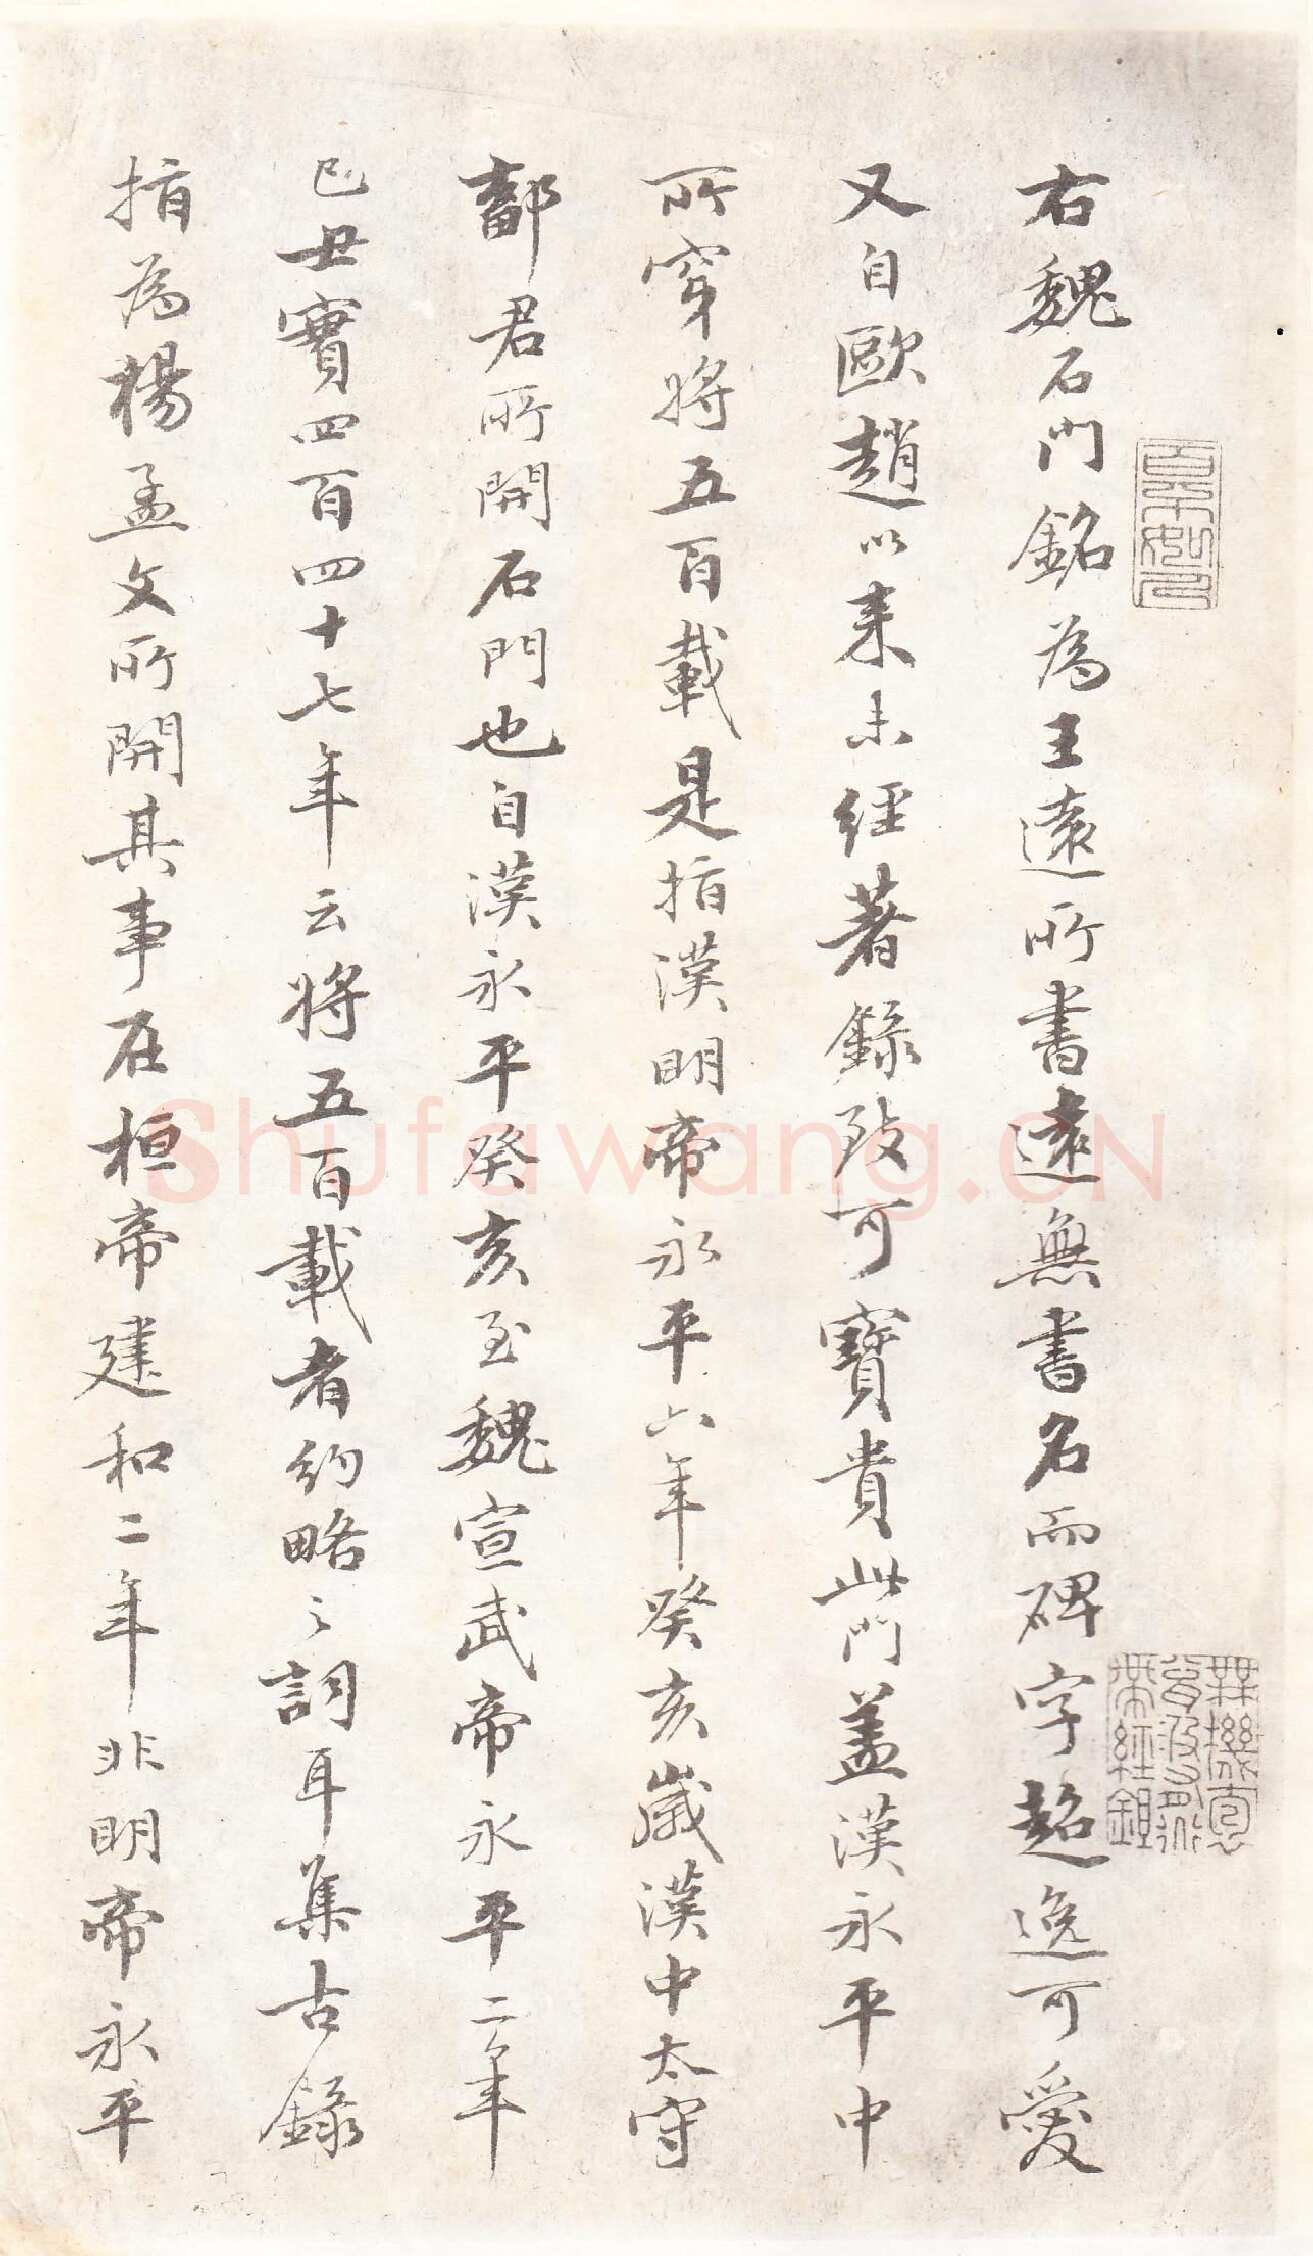 右魏石門銘為王遠所書遠無書名而碑字超逸可愛
又自歐趙以来未經著錄致可寶貴此門盖漢永平中
所穿將五百載是指漢明帝永平六年癸亥歲漢中太守
鄐君所開石門也自漢永平癸亥至魏宣武帝永平二年
己丑實四百四十七年云將五百載者約略之詞耳集古錄
指為楊孟文所開其事在桓帝建和二年非明帝永平
Shufawang.CN